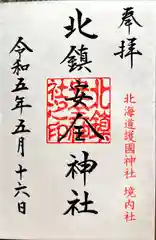 奉拝
北海道護國神社 境内社
北鎮安全神社
北鎮
社之印
令和五年五月十六日